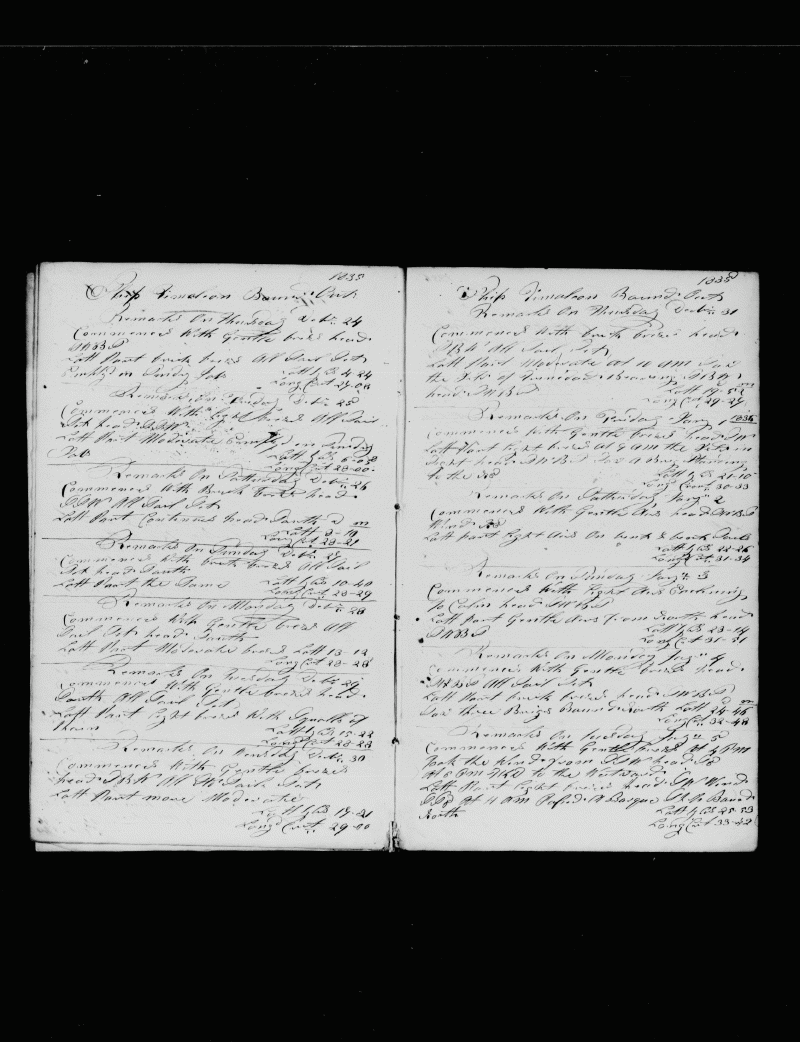 1835
Ship Timoleon Bound Out
Remarks On Thursday Decbr 24
Commences With Gentle breis head
SWBS
Latt Part brisk breis All Sail Set
Employed in Sundry Jobs Latt by Ob 4-24
Long Cot 27-08
Remarks On Friday Decbr 25
Commences With Light breis All Sail
Set head SSW
Latt Part Moderate Employed on Sundry
Jobs Latt by Ob 6-08
Long Cot 28-00
Remarks On Satturday Decbr 26
Commences With Brisk breis head
SSW All Sail Set
Latt Part Continues head South
Latt 8-19
Long Cot 28-21
Remarks On Sunday Decbr 27
Commences With brisk breis All Sail
Set head South
Latt Part the Same Latt by Ob 10-40
Long Cot 28-29
Remarks On Monday Decbr 28
Commences With Gentle breis All
Sail Set head South
Latt Part Moderate breis Latt 13-12
Long Cot 28-28
Remarks On Tuesday Decbr 29
Commences With Gentle breis head
South All Sail Set
Latt Part light breis With Squalls of
Latt by Ob 15-22
Long Cot 28-28
Remarks On Wensday Decbr 30
Commences With Gentle breis
head SBW All Sail Set
Latt Part more Moderate
Latt by Ob 17-21
Long Cot 29-00
1835
Ship Timoleon Bound Out
Remarks On Thursday Decbr 31
Commences With brisk breis head
SBW All Sail Set
Latt Part Moderate At 10 AM Saw
the Isle of Trinidad Bearing SBW
head SWBS Latt 19-52
Long Cot 29-29
Remarks On Fryday Jany 1 1836
Commences With Gentle breis head SW
Latt Part light breis At 9 AM the Isle in
Sight head SWBS Saw A Brig Standing
to the Nd Latt by Ob 21-10
Long Cot 30-33
Remarks On Satturday Jany 2
Commences With Gentle Airs head SWBS
Wind
Latt part light Airs
Latt by Ob 22-26
Long Cot 31-34
Remarks On Sunday Jany 3
Commences With light Airs
to Calm head SWBS
Latt Part Gentle Airs from North head
SWBS Latt by Ob 23-14
Long Cot 31-51
Remarks On Monday Jany 4
Commences With Gentle breis head
SWBS All Sail Set
Latt Part brisk breis head SWBS
Saw three Brigs Bound North Latt 24-46
Long Cot 32-48
Remarks On Tuesday Jany 5
Commences With Gentle breis At 4 PM
Took the Wind from SSW head
At 8 PM to the Westward
Latt Part light breis head SW Wind
At 4 AM Passed A Barque Bound
North Latt by Ob 25-53
Long Cot 33-42